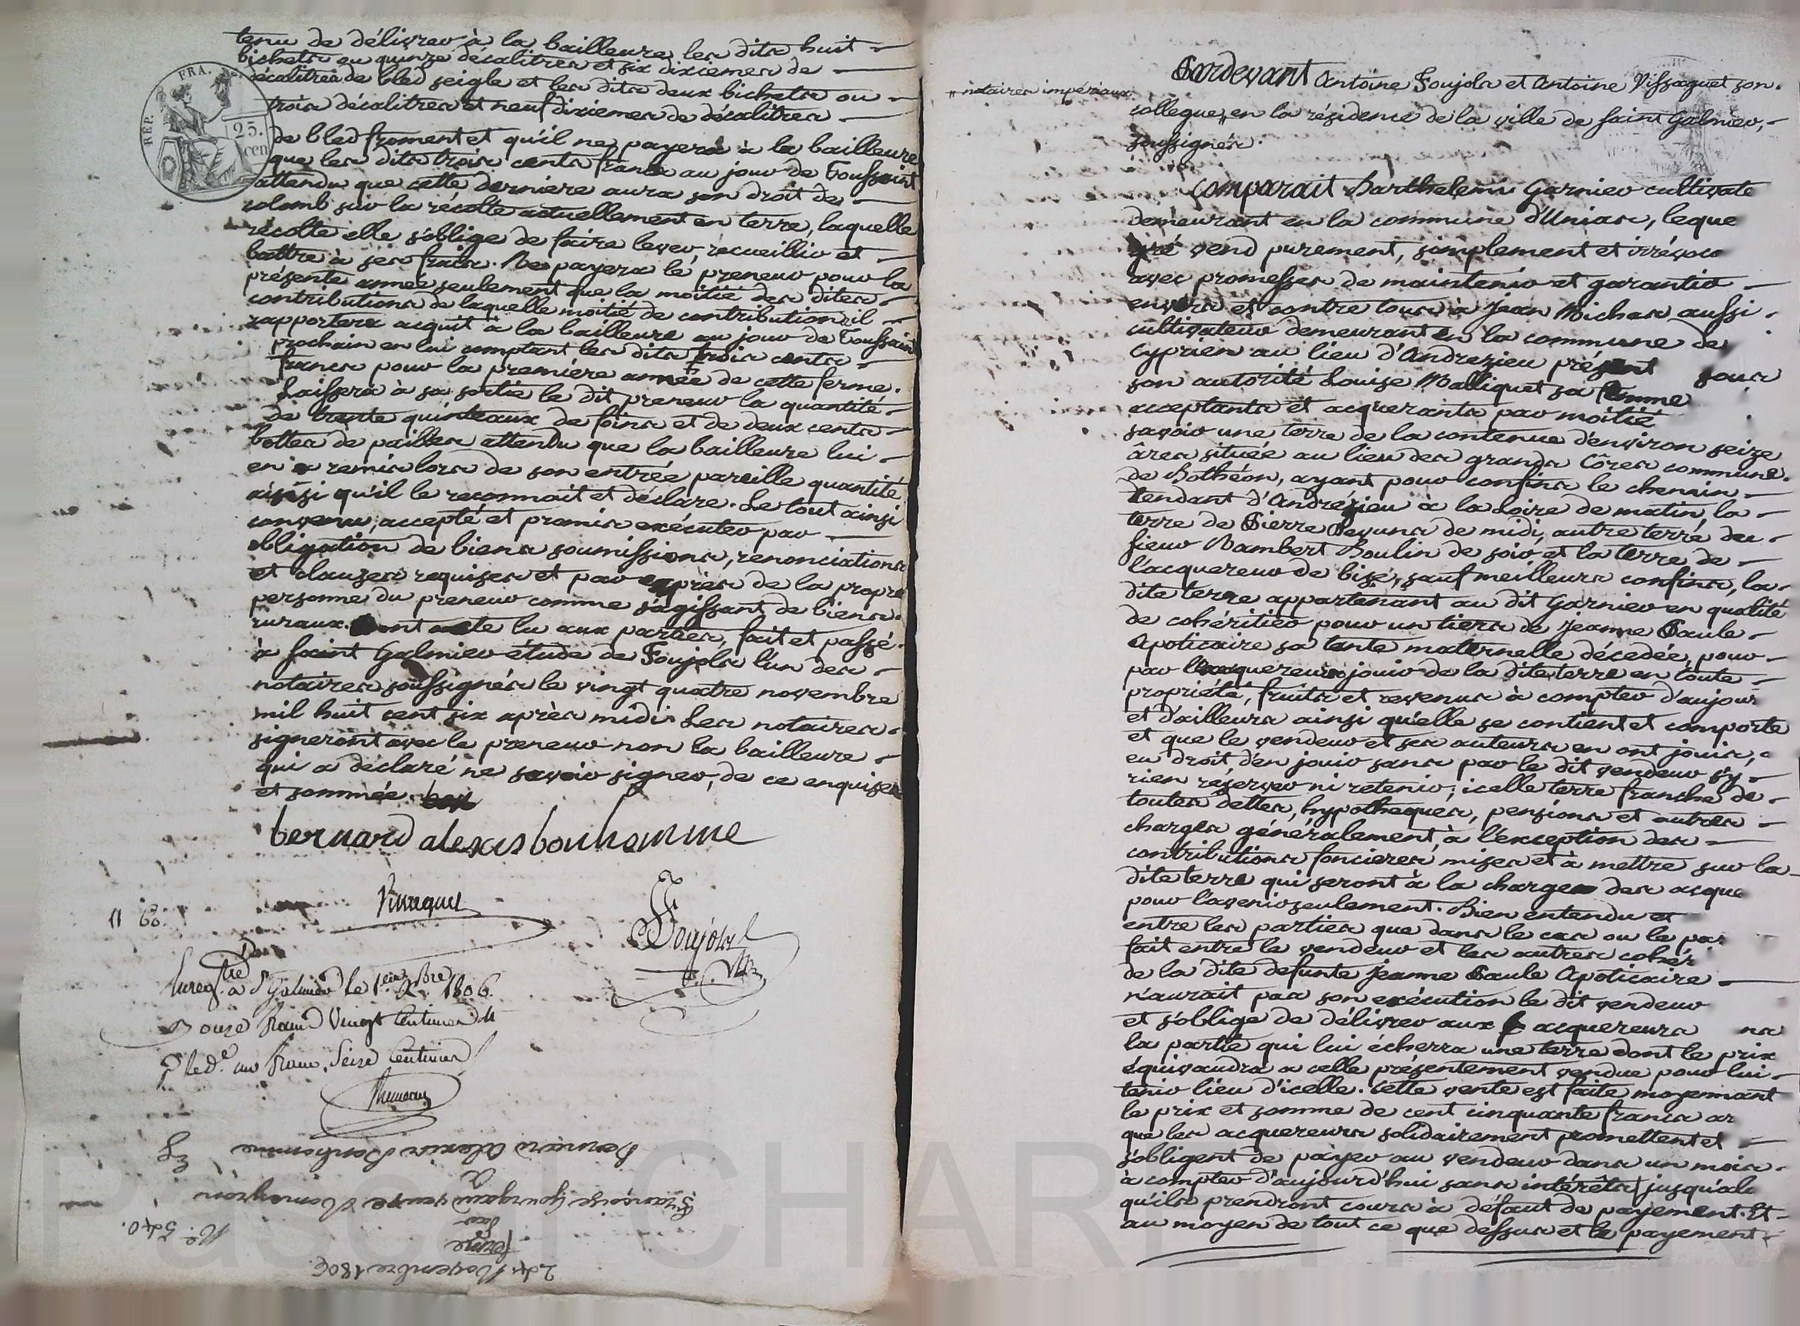 tenu de délivrer à la bailleure les dits huit
bichets ou quinze décalitres et six dixiemes de
décalitres de bled seigle et les dits deux bichets ou
trois décalitres et neuf dixiemes de décalitres
de bled froment et qu'il ne payera à la bailleure
que les dits trois cents francs au jour de Toussaint
attendu que cette derniere aura son droit de
colomb sur la récolte actuellement en terre, laquelle
récolte elle s'oblige de faire lever, recueillir et
battre à ses frais. Ne payera le preneur pour la
présente année seulement que la moitié des dites
contributions de laquelle moitié de contribution il
rapportera acquit à la bailleure au jour de Toussaint
prochain en lui comptant les dits trois cents
francs pour la premiere année de cette ferme.
Laissera à sa sortie le dit preneur la quantité
de trente quinteaux de foins et de deux cents
bottes de pailles attendu que la bailleure lui
en a remis lors de son entrée pareille quantité
ainsi qu'il le reconnait et déclare. Le tout ainsi
convenu, accepté et promis executer par
obligation de biens soumissions, renonciations
et clauses requises et par exprès de la propre
personne du preneur comme s'agissant de biens
ruraux. Dont acte lu aux parties, fait et passé
à saint Galmier étude de Foujols l'un des
notaires soussignés le vingt quatre novembre
mil huit cent six après midi. Les notaires
signeront avec le preneur non la bailleure
qui a déclaré ne savoir signer, de ce enquise
et sommée.
bernard alexis bonhomme
Vissaguet
Foujols
11 68.
Enregtré à St Galmier le 1er Xbre 1806
Reçu onze francs vingt centimes
Plus de un franc seize centimes
Bernard Alexis Bonhomme
Françoise veuve
No. 540.
ferme
24 Novembre 1806
REP. FRA.
25. cen
Pardevant Antoine Foujols et Antoine Vissaguet son
" notaires impériaux
collegue, en la résidence de la ville de saint Galmier,
soussignés.
Comparait Barthelemi Garnier cultivate
demeurant en la commune d'Unias, leque
gré vend purement, simplement et irrévoc
avec promesses de maintenir et garantir
envers et contre tous à Jean Michas aussi
cultivateur demeurant en la commune de
Cyprien au lieu d'Andrezieu présent sous
son autorité Louise Malliquet sa femme
acceptants et acquerants par moitié
savoir une terre de la contenue d'environ seize
âres située au lieu des grands Côres commune
de Bothéon, ayant pour confins le chemin
tendant d'Andrézieu à la Loire de matin, la
terre de Pierre Peyuna de midi, autre terre du
sieur Rambert Poulin de soir et la terre de
l'acquereur de bise, sauf meilleurs confins, la
dite terre appartenant au dit Garnier en qualité
de cohéritier pour un tiers de Jeanne Paule
Apoticaire sa tante maternelle décedée, pour
par l'acquereur jouir de la dite terre en toute
propriété, fruits et revenus à compter d'aujour
et d'ailleurs ainsi qu'elle se contient et comporte
et que le vendeur et ses auteurs en ont joui,
eu droit d'en jouir sans par le dit vendeur s'y
rien réserver ni retenir; icelle terre franche de
toutes dettes, hypotheques, pensions et autres
charges généralement, à l'exception des
contributions foncieres mises et à mettre sur la
dite terre qui seront à la charge des acque
pour l'avenir seulement. Bien entendu et
entre les parties que dans le cas ou le par
fait entre le vendeur et les autres cohéri
de la dite defunte Jeanne Paule Apoticaire
n'aurait pas son exécution le dit vendeur
et s'oblige de délivrer aux acquereurs
la partie qui lui écherra une terre dont le prix
équivaudra à celle présentement vendue pour lui
tenir lieu d'icelle. Cette vente est faite moyennant
le prix et somme de cent cinquante francs
que les acquereurs solidairement promettent et
s'obligent de payer au vendeur dans un mois
à compter d'aujourd'hui sans intérêts jusqu'alo
qu'ils prendront cours à défaut de payement. Et
au moyen de tout ce que dessus et le payement
Pascal CHARPITRON